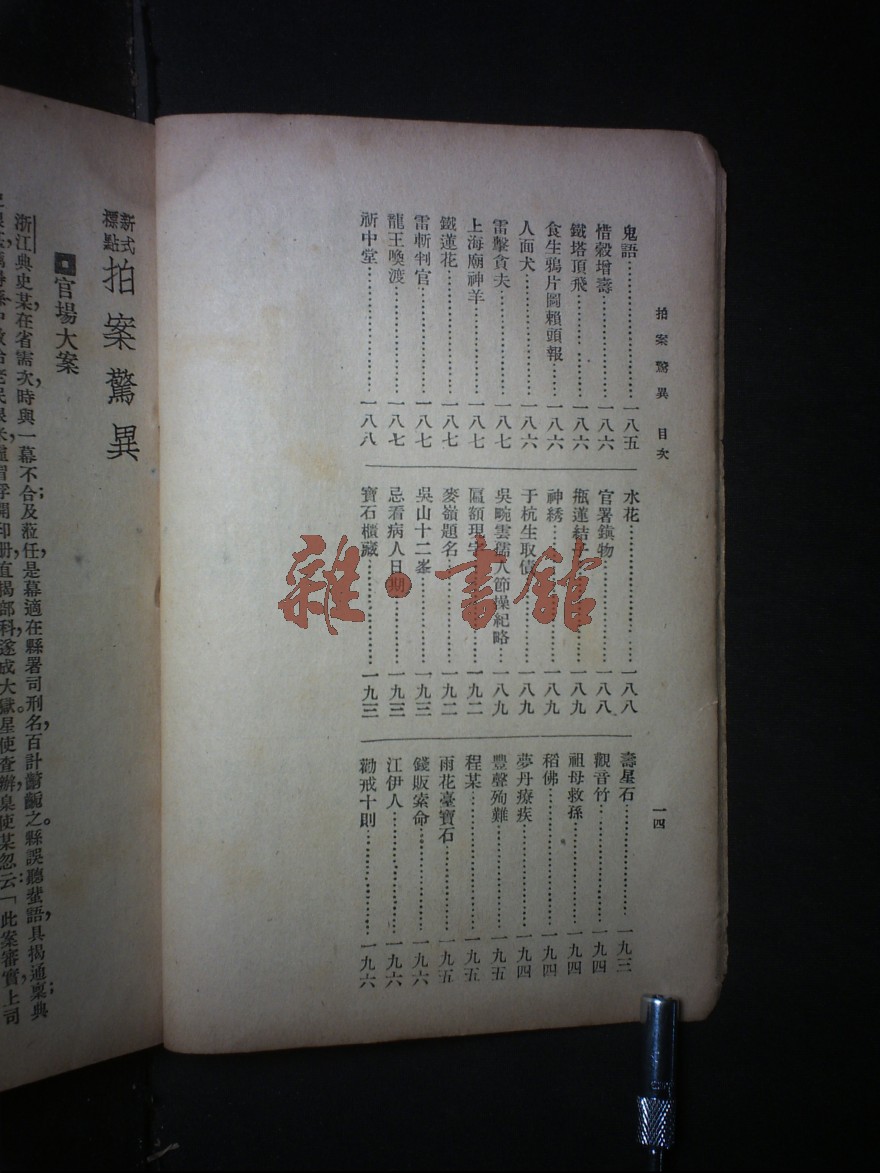 拍案驚異 目次 一四
鬼語……一八五
惜穀增壽……一八六
鐵塔頂飛……一八六
食生鴉片圖賴頭報……一八六
人面犬……一八六
雷擊貪夫……一八七
上海廟神羊……一八七
鐵蓮花……一八七
雷斬判官……一八七
龍王喚渡……一八七
祈中堂……一八八
水花……一八八
官署鎭物……一八八
瓶蓮結子……一八九
神綉……一八九
于杭生取債……一八九
吳畹雲孺人節操紀略……一八九
匾額現字……一九二
麥嶺題名……一九二
吳山十二峯……一九三
忌看病人日期……一九三
寶石櫃藏……一九三
壽星石……一九三
觀音竹……一九四
祖母救孫……一九四
稻佛……一九四
夢丹療疾……一九四
豐聲殉難……一九五
程某……一九五
雨花臺寶石……一九五
錢販索命……一九六
江伊人……一九六
勸戒十則……一九六
雜·書館
新式標點 拍案驚異
官場大案
浙江典史某在省需次時，與一幕不合；及蒞任，是幕適在縣署司刑名，百計齮齕之。縣誤聽蜚語，具揭通稟；典